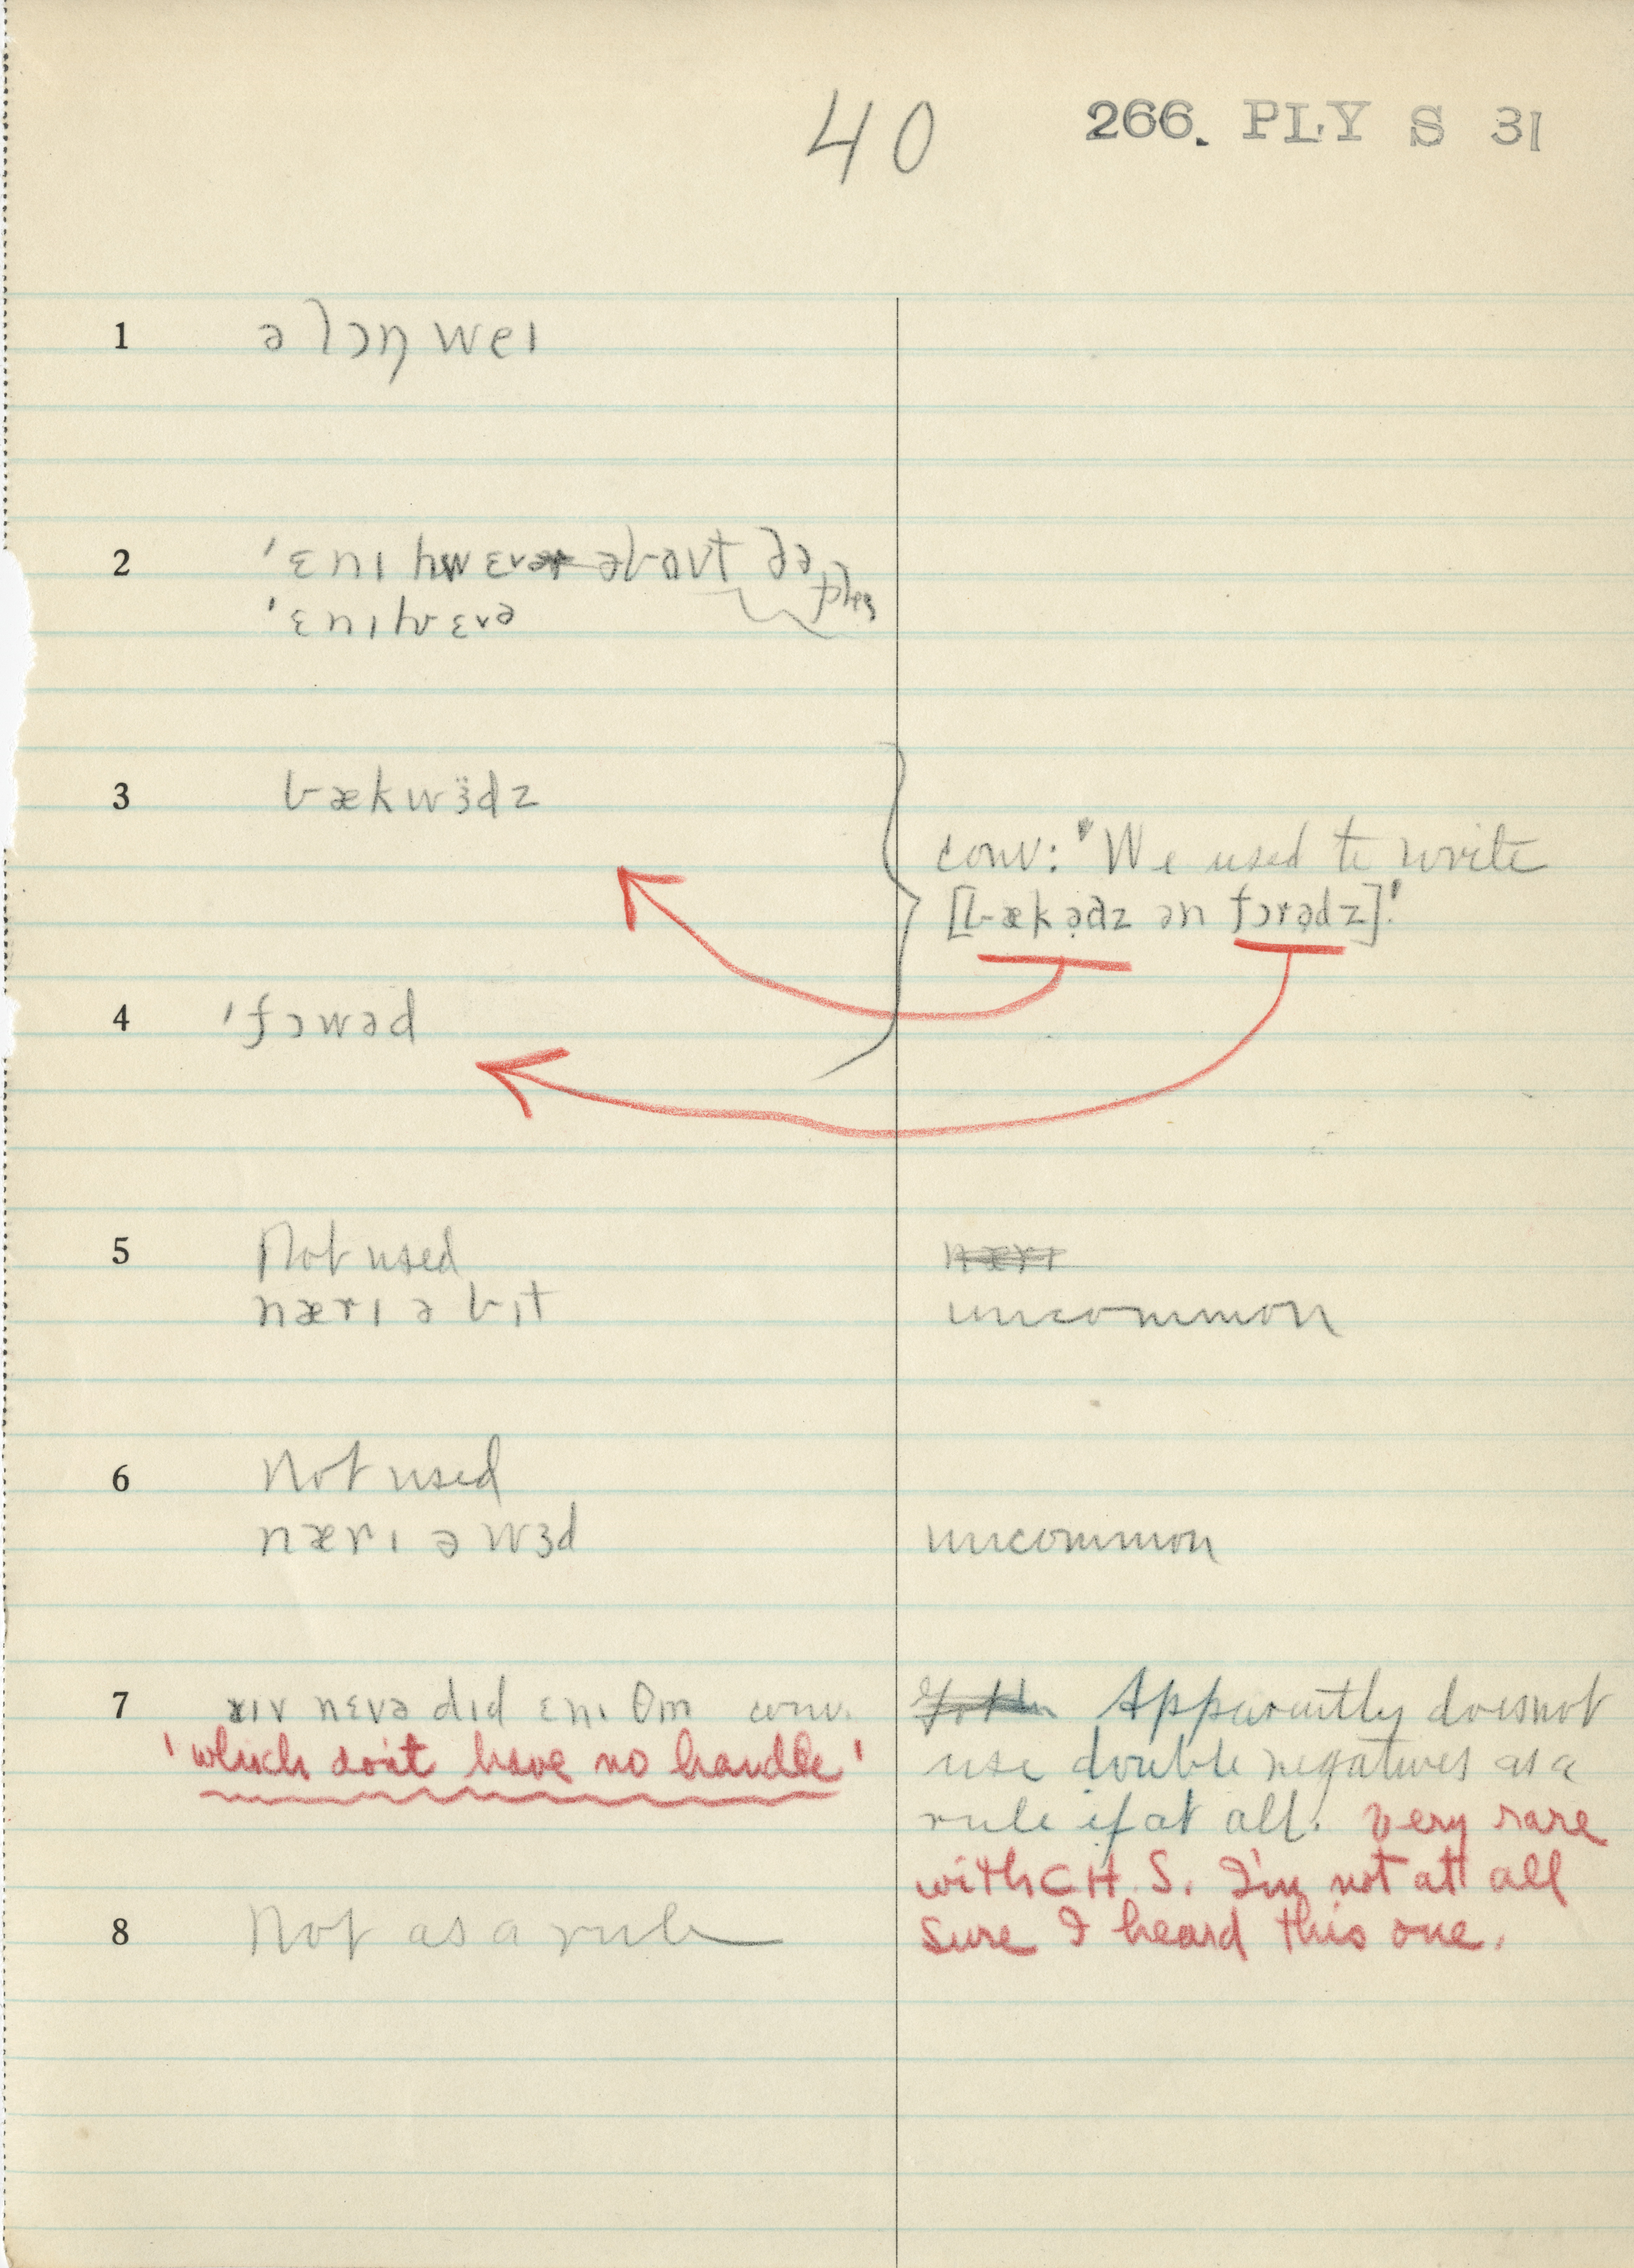 40 266. PLY S 31
1 ə lɔŋ weɪ
2 'ɛnɪ hwɛvə əbaʊt ðə
'ɛnɪhwɛvə
3 bækwɜ̈dz
conv: "We used to write
[bækə̣dz ən fɔrə̣dz]."
4 'fɔwəd
5 Not used
nærɪ
nærɪ ə bɪt uncommon
6 Not used
nærɪ ə wɜd uncommon
7 nɛvə did ɛnɪ conv. Apparently does not
'which don't have no handle' use double negatives as a
rule if at all. Very rare
with CH.S. I'm not at all
8 Not as a rule sure I heard this one.